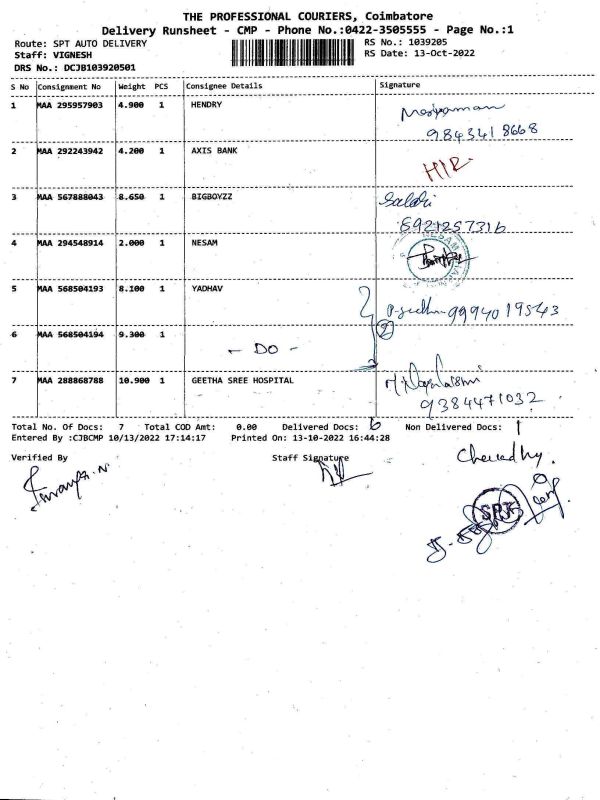 THE PROFESSIONAL COURIERS, Coimbatore
Delivery Runsheet - CMP - Phone No.:0422-3505555 - Page No.:1
Route: SPT AUTO DELIVERY RS No.: 1039205
Staff: VIGNESH RS Date: 13-Oct-2022
DRS No.: DCJB103920501
S No Consignment No Weight PCS Consignee Details Signature
1 MAA 295957903 4.900 1 HENDRY
9843418668
2 MAA 292243942 4.200 1 AXIS BANK
3 MAA 567888043 8.650 1 BIGBOYZZ
8921257316
4 MAA 294548914 2.000 1 NESAM
NESAM
5 MAA 568504193 8.100 1 YADHAV 9994019543
2
6 MAA 568504194 9.300 1
- DO -
7 MAA 288868788 10.900 1 GEETHA SREE HOSPITAL
9384471032
Total No. Of Docs: 7 Total COD Amt: 0.00 Delivered Docs: 6 Non Delivered Docs: 1
Entered By :CJBCMP 10/13/2022 17:14:17 Printed On: 13-10-2022 16:44:28
Verified By Staff Signature